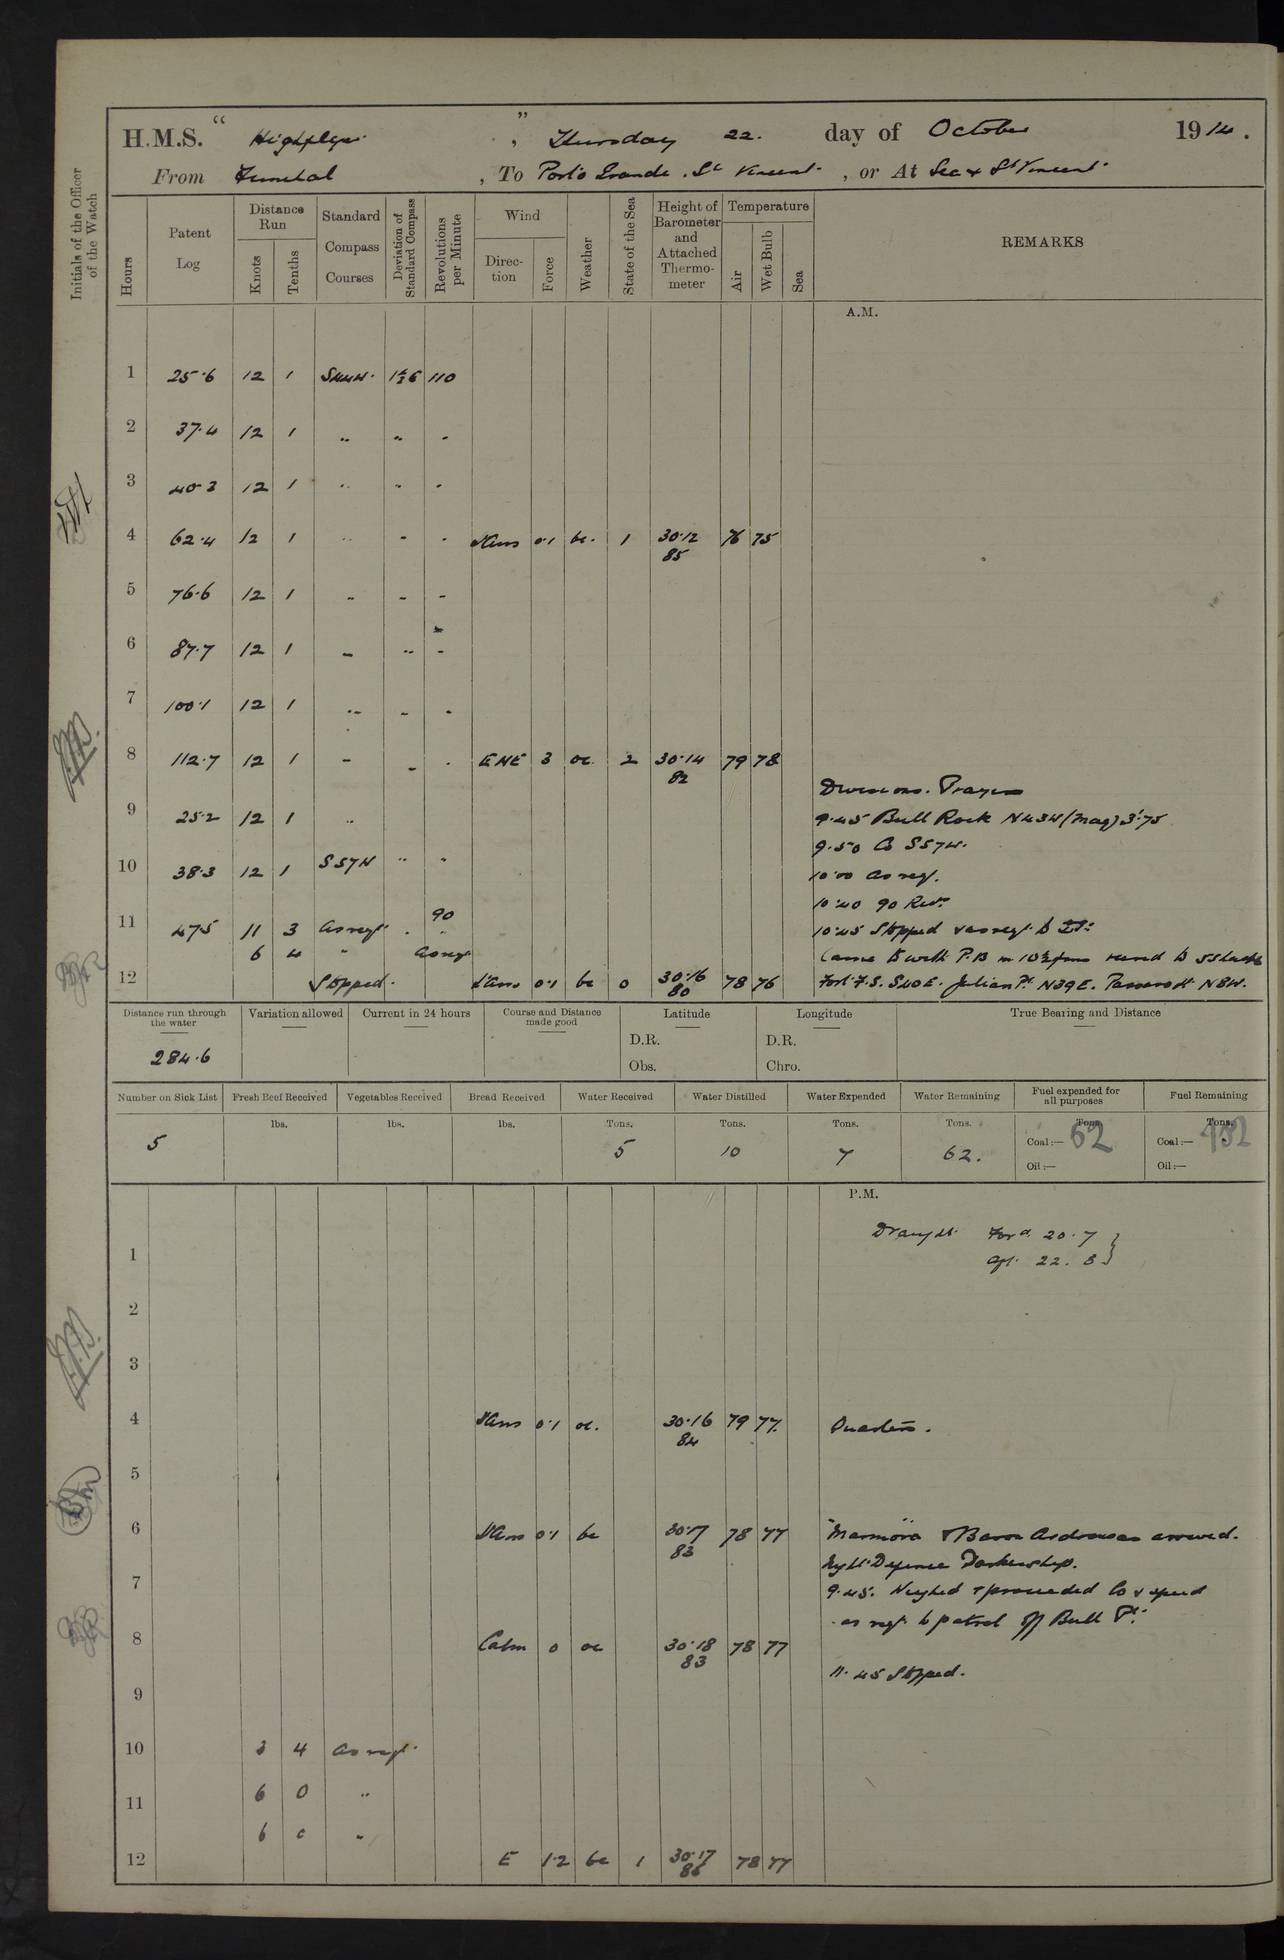 H.M.S. " Highflyer " , Thursday 22. day of October 1914.
From Funchal , To Porto Grande. St Vincent , or At Sea & St Vincent
Initials of the Officer of the Watch
Hours
Patent Log
Distance Run
Knots
Tenths
Standard Compass Courses
Deviation of Standard Compass
Revolutions per Minute
Wind
Direction
Force
Weather
State of the Sea
Height of Barometer and Attached Thermometer
Temperature
Air
Wet Bulb
Sea
REMARKS
A.M.
1 25.6 12 1 S44W. 110
2 37.4 12 1 " " "
3 12 1 " " "
4 62.4 12 1 " " " Vars 0.1 bc. 1 30.12 76 75
85
5 76.6 12 1 " " "
6 87.7 12 1 " " "
7 100.1 12 1 " " "
8 112.7 12 1 " " " ENE 3 oc. 2 30.14 79 78
82
Divisions. Prayers
9 25.2 12 1 " 9.45 Bull Rock N43W (Mag) 3'.75
9.50 Co S57W.
10 38.3 12 1 S57W " " 10.00 As req.
10.40 90 Revs
11 47.5 11 3 As req. " 90 10.45 Stopped & as req. to
6 4 " As req. Came to with P.B in 10½ fms veered to 5 Shackles
12 Stopped. Vars 0.1 bc 0 30.16 78 76 Fort F.S. S40E. Julian Pt. N39E. N8W.
80
Distance run through the water
Variation allowed
Current in 24 hours
Course and Distance made good
Latitude
Longitude
True Bearing and Distance
284.6
D.R.
Obs.
D.R.
Chro.
Number on Sick List
Fresh Beef Received
Vegetables Received
Bread Received
Water Received
Water Distilled
Water Expended
Water Remaining
Fuel expended for all purposes
Fuel Remaining
lbs. lbs. lbs. Tons. Tons. Tons. Tons. Tons. Tons.
5 5 10 7 62. Coal:— 62 Coal:—
Oil:— Oil:—
P.M.
Draught Ford. 20.7 }
1 Aft. 22.8 }
2
3
4 Vars 0.1 oc. 30.16 79 77. Quarters.
84
5
6 Vars 0.1 bc 30.17 78 77 "Marmora" & Baron arrived.
83
Night Defence Darken ship.
7 9.45. Weighed & proceeded Co & speed
as req. to patrol off Bull Pt.
8 Calm 0 oc 30.18 78 77
83
11.45 Stopped.
9
10 3 4 As req.
11 6 0 "
6 0 "
12 E 1.2 bc 1 30.17 78 77
86